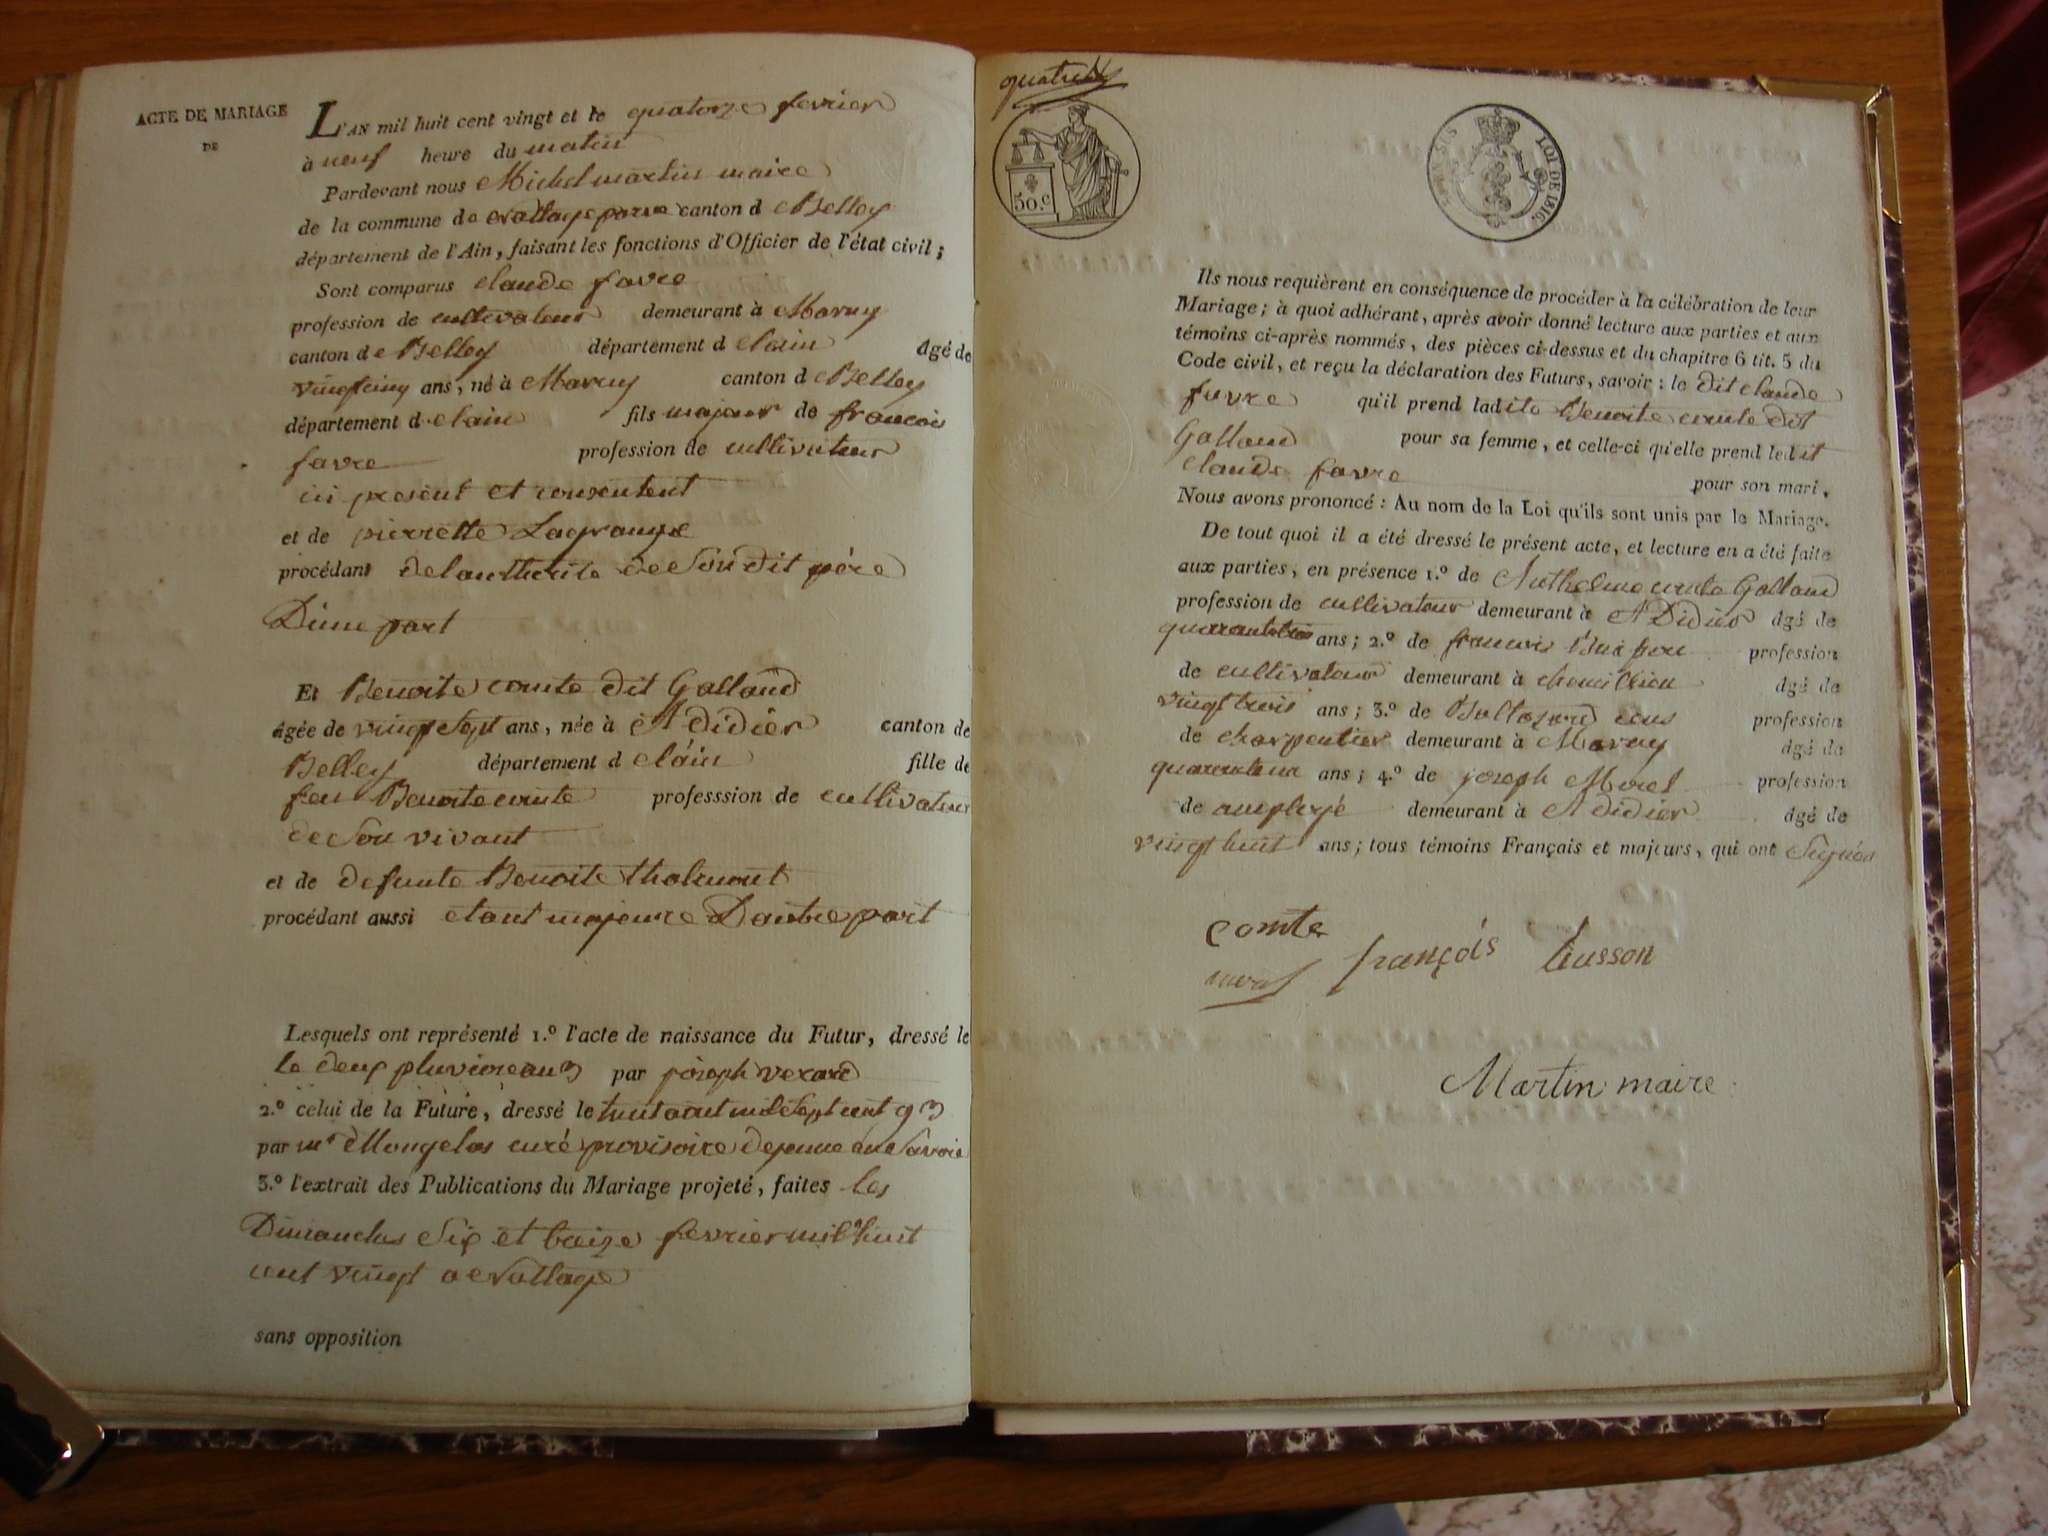 ACTE DE MARIAGE
DE
L'AN mil huit cent vingt et le quatorze fevrier
à neuf heure du matin
Pardevant nous Michel martin maire
de la commune de canton d Belley
département de l'Ain, faisant les fonctions d'Officier de l'état civil;
Sont comparus claude favre
profession de cultivateur demeurant à
canton de Belley département d clain âgé de
vingtcinq ans, né à canton d Belley
département d clain fils majeur de francois
favre profession de cultivateur
ici présent et consentent
et de pierrette Lagrange
procédant delautherite de Son dit père
Dune part
Et Benoite comte dit Galland
âgée de vingt Sept ans, née à St didier canton de
Belley département d clain fille de
feu Benoite comte professsion de cultivateur
de Son vivant
et de defunte Benoite
procédant aussi etant majeure Dautre part
Lesquels ont représenté 1.º l'acte de naissance du Futur, dressé le
le deux pluviore an 3 par joseph
2.º celui de la Future, dressé le aout mil Sept cent 93
par mr curé provisoire de en Savoie
3.º l'extrait des Publications du Mariage projeté, faites les
Dimanches Six et treize fevrier mil huit
cent vingt a
sans opposition
50.c
LOI DE 1816.
Ils nous requièrent en conséquence de procéder à la célébration de leur
Mariage; à quoi adhérant, après avoir donné lecture aux parties et aux
témoins ci-après nommés, des pièces ci-dessus et du chapitre 6 tit. 5 du
Code civil, et reçu la déclaration des Futurs, savoir: le dit claude
favre qu'il prend ladite Benoite comte dit
Galland pour sa femme, et celle-ci qu'elle prend ledit
claude favre pour son mari.
Nous avons prononcé: Au nom de la Loi qu'ils sont unis par le Mariage.
De tout quoi il a été dressé le présent acte, et lecture en a été faite
aux parties, en présence 1.º de Anthelme comte Galland
profession de cultivateur demeurant à St Didier âgé de
ans; 2.º de francois profession
de cultivateur demeurant à âgé de
vingt trois ans; 3.º de profession
de charpentier demeurant à âgé de
ans; 4.º de joseph Morel profession
de demeurant à St didier âgé de
vingt huit ans; tous témoins Français et majeurs, qui ont Signés
comte
françois
Martin maire